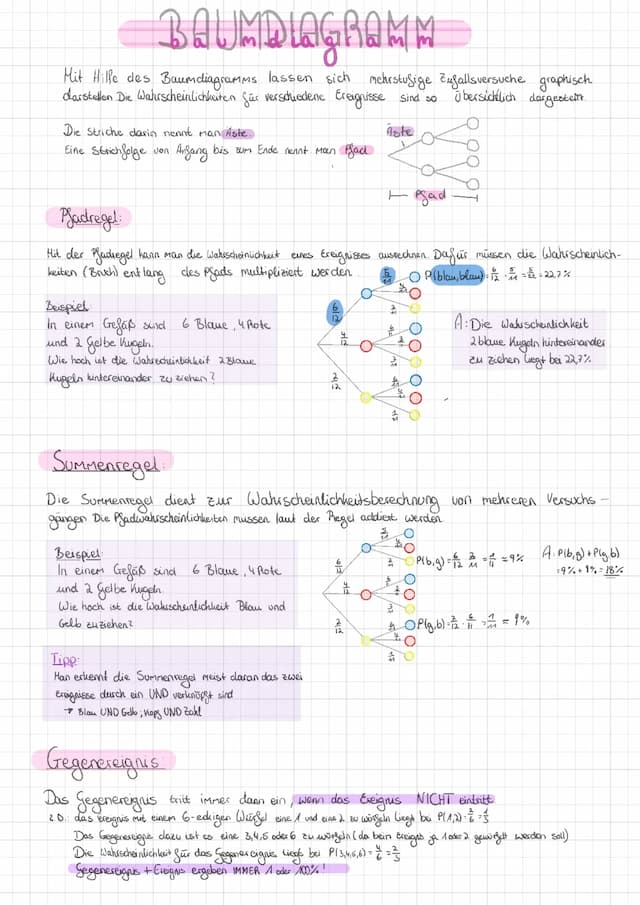 BAUMDIAGRAMM
baumdiagramm
Mit Hilfe des Baumdiagramms lassen sich mehrstufige Zufallsversuche graphisch
darstellen Die Wahrscheinlichkeiten für verschiedene Ereignisse sind so übersichtlich dargestellt.
Die Striche darin nennt man Äste
Eine Strichfolge von Anfang bis zum Ende nennt man Pfad
Äste
Pfad
Pfadregel:
Mit der Pfadregel kann man die Wahrscheinlichkeit eines Ereignisses ausrechnen. Dafür müssen die Wahrscheinlich-
keiten (Bruch) entlang des Pfads multipliziert werden.
P(blau,blau) = 6/12 · 5/11 = 5/22 = 22,7%
Beispiel
In einem Gefäß sind 6 Blaue, 4 Rote
und 2 Gelbe Kugeln.
Wie hoch ist die Wahrscheinlichkeit 2 Blaue
Kugeln hintereinander zu ziehen?
6/12
4/12
2/12
5/11
A: Die Wahrscheinlichkeit
2 blaue Kugeln hintereinander
zu ziehen liegt bei 22,7%
Summenregel:
Die Summenregel dient zur Wahrscheinlichkeitsberechnung von mehreren Versuchs-
gängen Die Pfadwahrscheinlichkeiten müssen laut der Regel addiert werden
Beispiel:
In einem Gefäß sind 6 Blaue, 4 Rote
und 2 Gelbe Kugeln.
Wie hoch ist die Wahrscheinlichkeit Blau und
Gelb zu ziehen?
6/12
4/12
2/12
P(b,g) = 6/12 · 2/11 = 1/11 = 9%
P(g,b) = 2/12 · 6/11 = 1/11 = 9%
A: P(b,g) + P(g,b)
= 9% + 9% = 18%
Tipp:
Man erkennt die Summenregel meist daran das zwei
Ereignisse durch ein UND verknüpft sind
→ Blau UND Gelb, Kopf UND Zahl
Gegenereignis
Das Gegenereignis tritt immer dann ein, wenn das Ereignis NICHT eintritt
z.B.: das Ereignis mit einem 6-eckigen Würfel eine 1 und eine 2 zu würfeln liegt bei P(1,2) = 2/6 = 1/3
Das Gegenereignis dazu ist es eine 3,4,5 oder 6 zu würfeln (da beim Ereignis ja 1 oder 2 gewürfelt werden soll)
Die Wahrscheinlichkeit für das Gegenereignis liegt bei P(3,4,5,6) = 4/6 = 2/3
Gegenereignis + Ereignis ergeben IMMER 1 oder 100%!